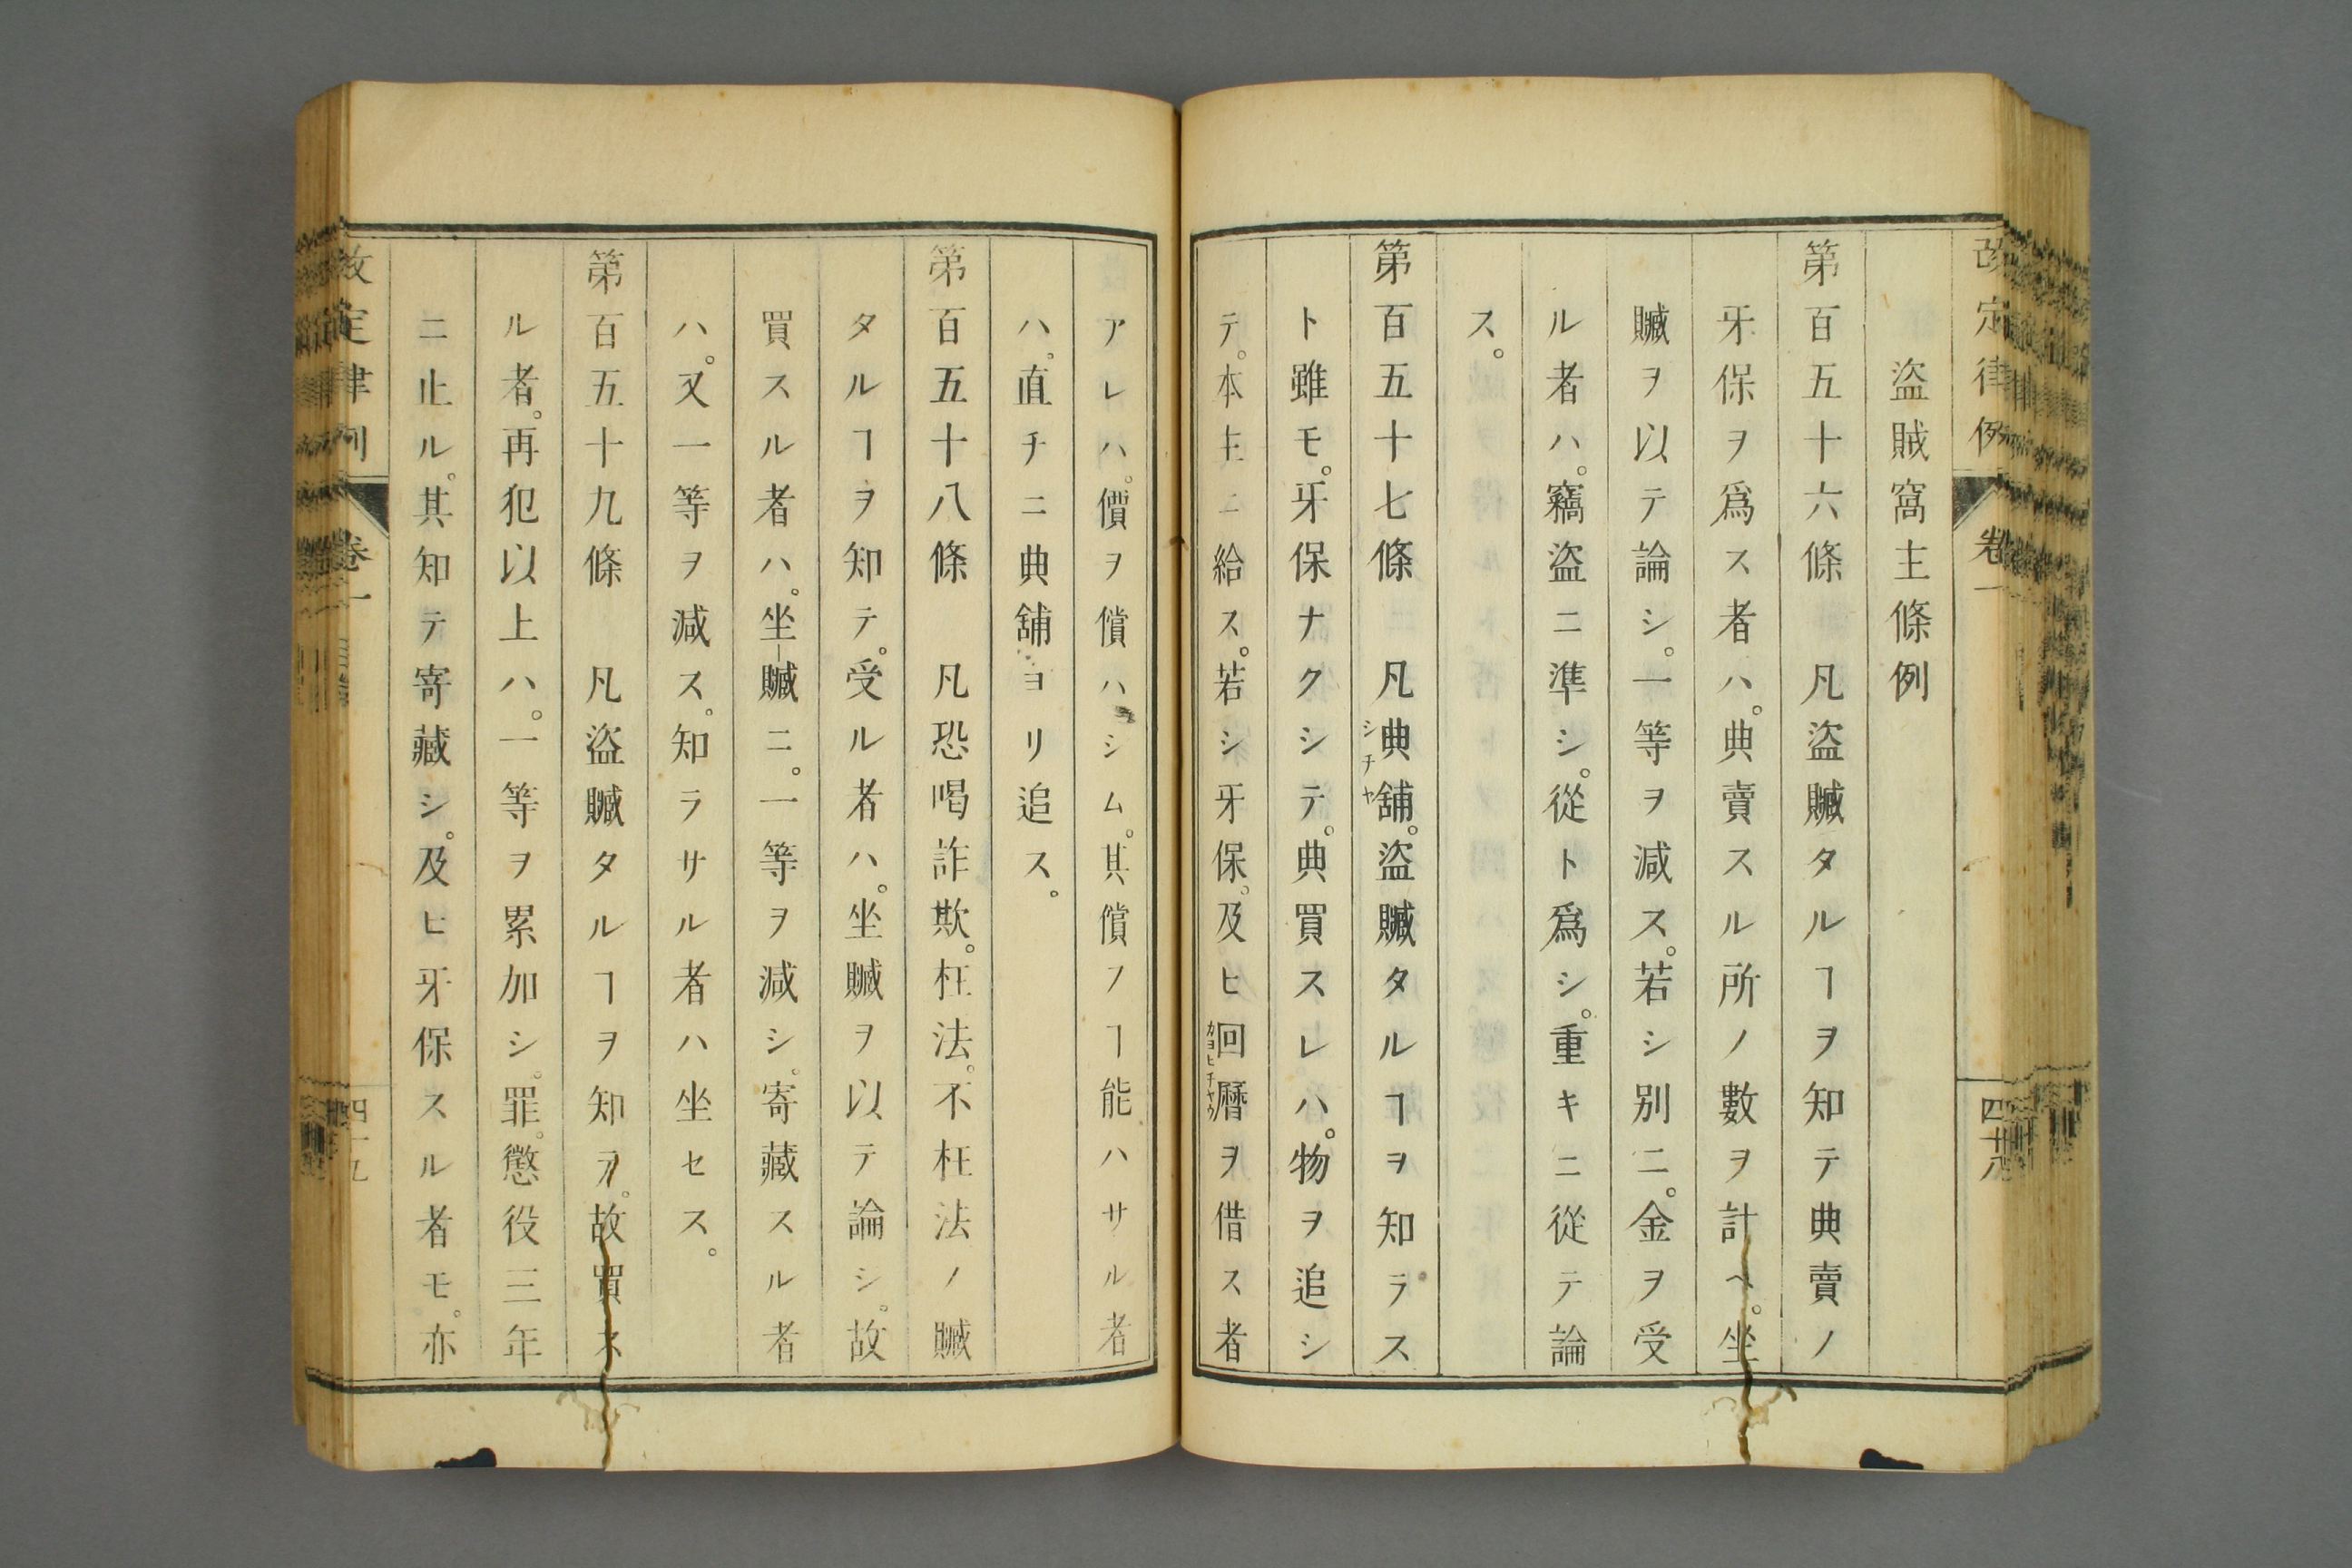 改定律例 卷一 四十八
盜賊窩主條例
第百五十六條 凡盜贓タルヿヲ知テ典賣ノ
牙保ヲ爲ス者ハ。典賣スル所ノ數ヲ計ヘ。坐
贓ヲ以テ論シ。一等ヲ減ス。若シ別ニ。金ヲ受
ル者ハ。竊盜ニ準シ。從ト爲シ。重キニ從テ論
ス。
第百五十七條 凡典舖。盜贓タルヿヲ知ラス
シチヤ
ト雖モ。牙保ナクシテ。典買スレハ。物ヲ追シ
テ。本主ニ給ス。若シ牙保。及ヒ回曆ヲ借ス者
カヨヒチヤウ
アレハ。價ヲ償ハシム。其償フヿ能ハサル者
ハ。直チニ典舖ヨリ追ス。
第百五十八條 凡恐喝詐欺。枉法。不枉法ノ贓
タルヿヲ知テ。受ル者ハ。坐贓ヲ以テ論シ。故
買スル者ハ。坐贓ニ。一等ヲ減シ。寄藏スル者
ハ。又一等ヲ減ス。知ラサル者ハ坐セス。
第百五十九條 凡盜贓タルヿヲ知テ。故買ス
ル者。再犯以上ハ。一等ヲ累加シ。罪。懲役三年
ニ止ル。其知テ寄藏シ。及ヒ牙保スル者モ。亦
改定律例 卷一 四十九